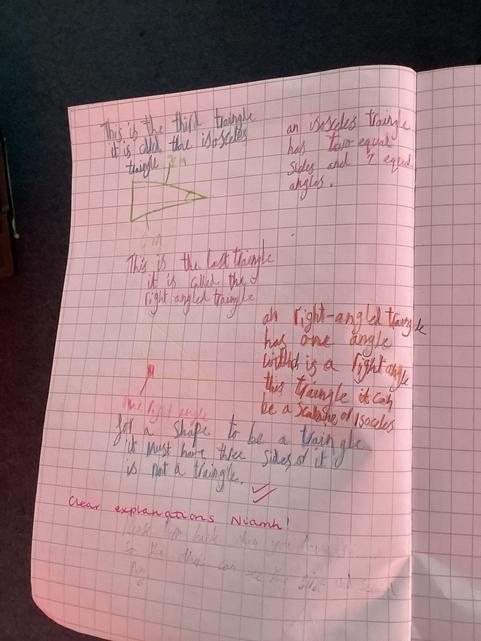 This is the third traingle
it is called thre isosceles
traingle
an isoscles traingle
has two equal
sides and 2 equal
angles.
This is the last traingle
it is called the
right angled traingle
an right-angled traingle
has one angle
which is a right angle
this traingle it can
be a scalene or isoceles
one right angle
for a shape to be a traingle
it must have three sides or it
is not a traingle.
Clear explanations Niamh!